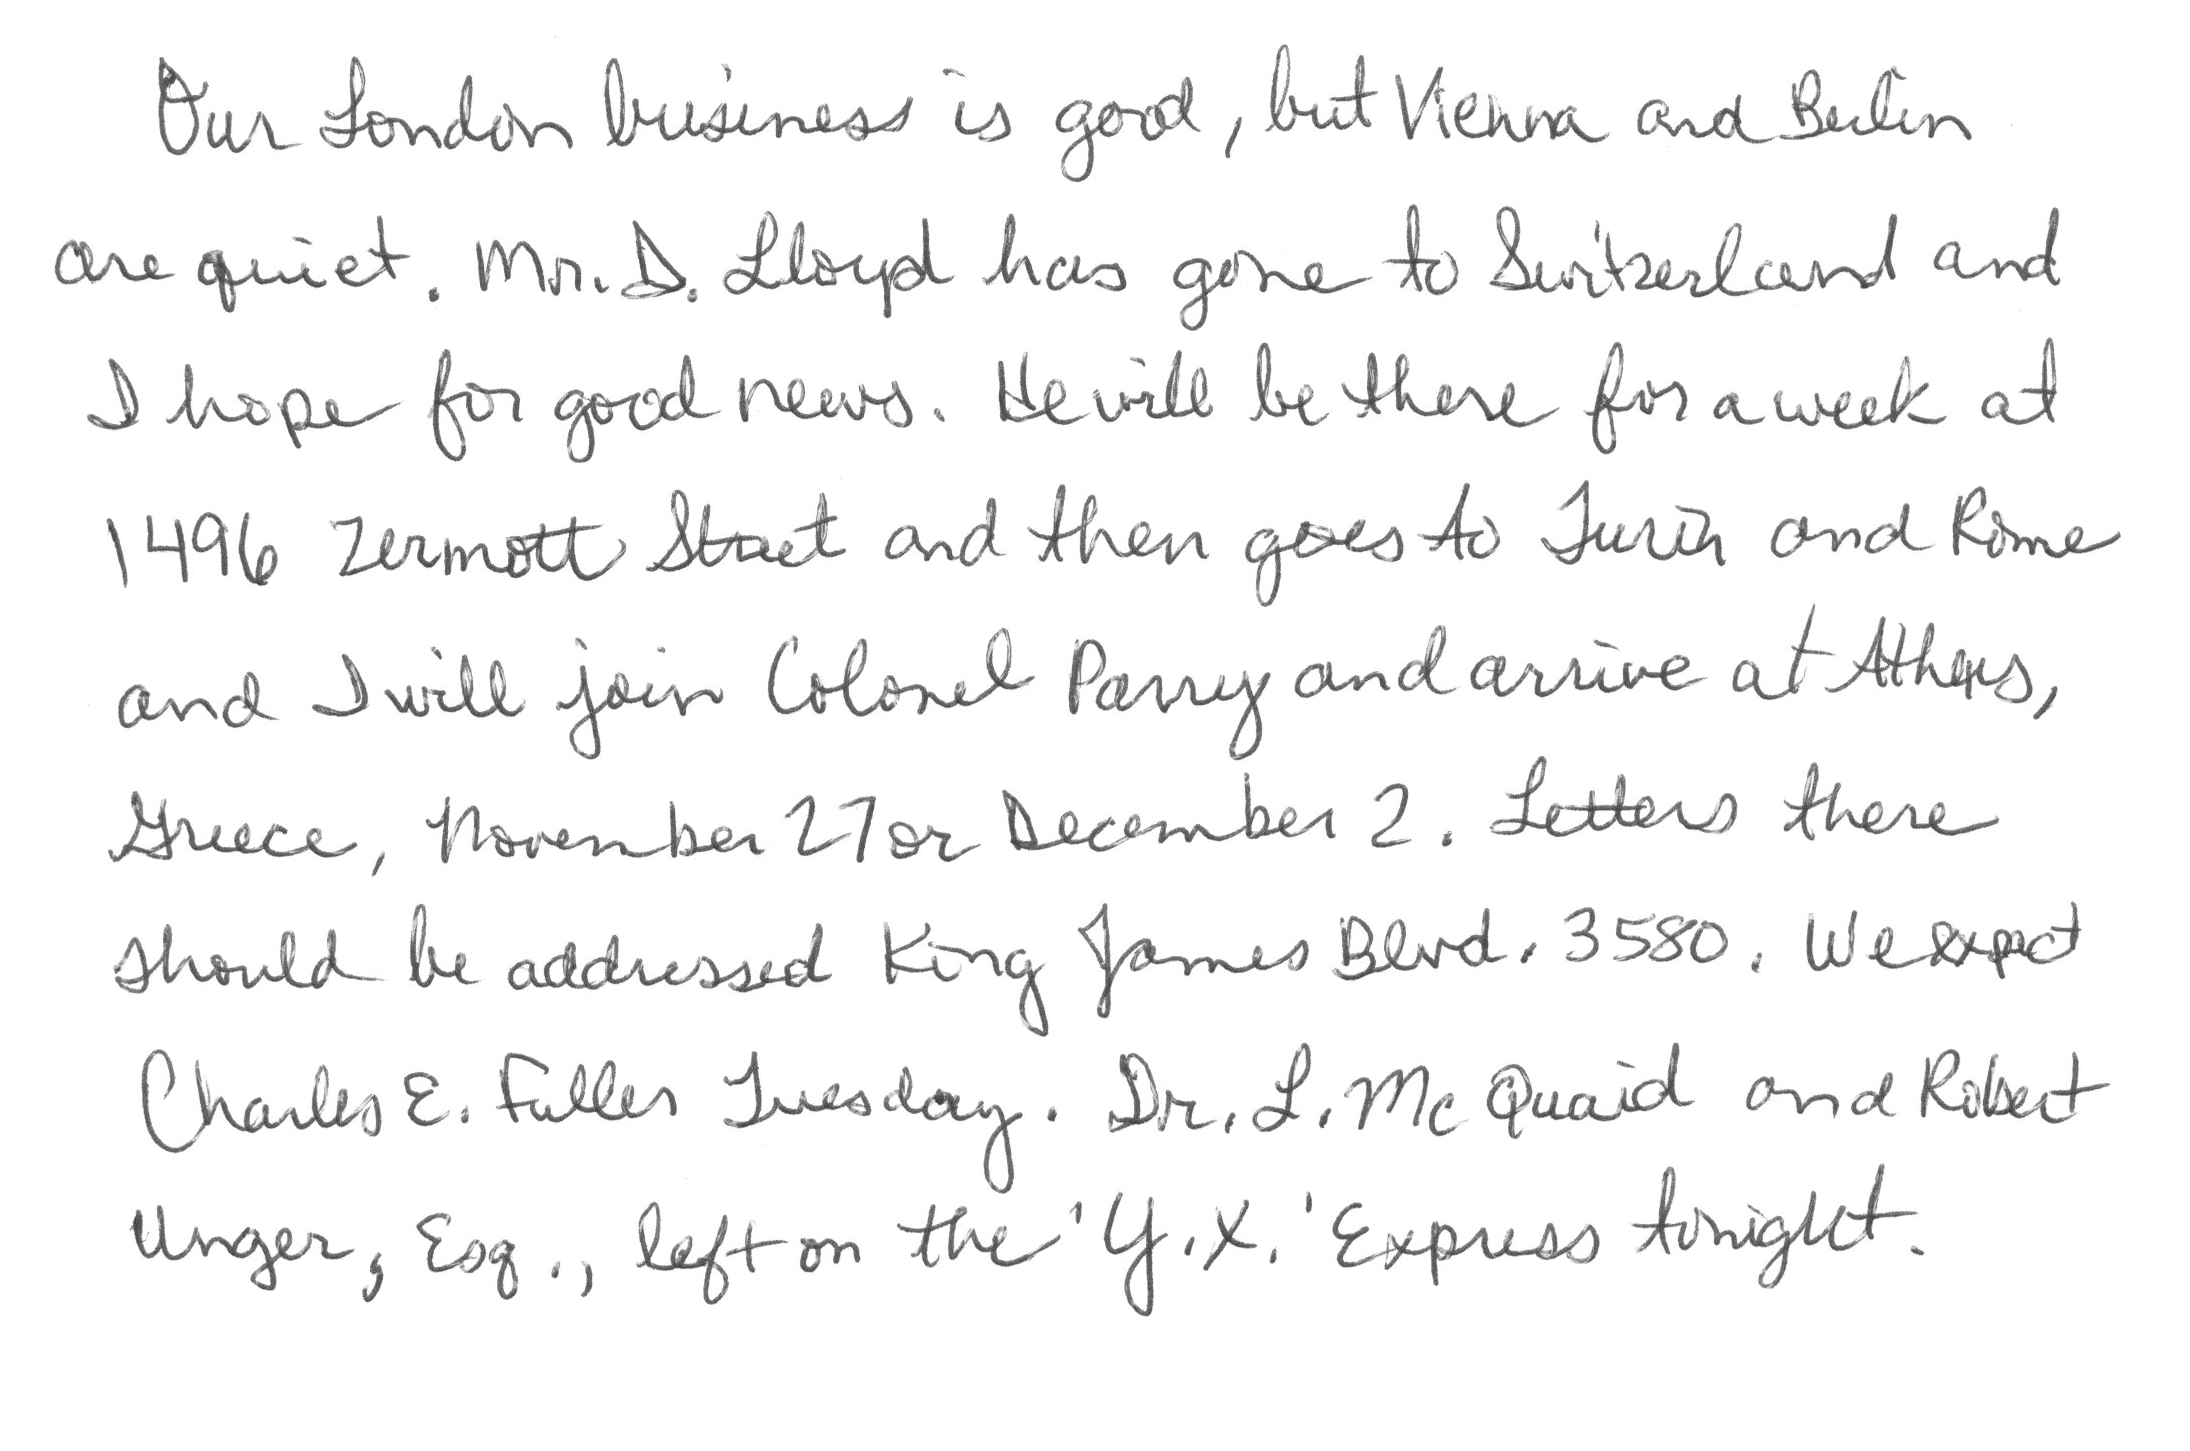 Our London business is good, but Vienna and Berlin
are quiet. Mr. D. Lloyd has gone to Switzerland and
I hope for good news. He will be there for a week at
1496 Zermott Street and then goes to Turin and Rome
and I will join Colonel Parry and arrive at Athens,
Greece, November 27 or December 2. Letters there
should be addressed King James Blvd. 3580. We expect
Charles E. Fuller Tuesday. Dr. L. McQuaid and Robert
Unger, Esq., left on the 'Y.X.' Express tonight.